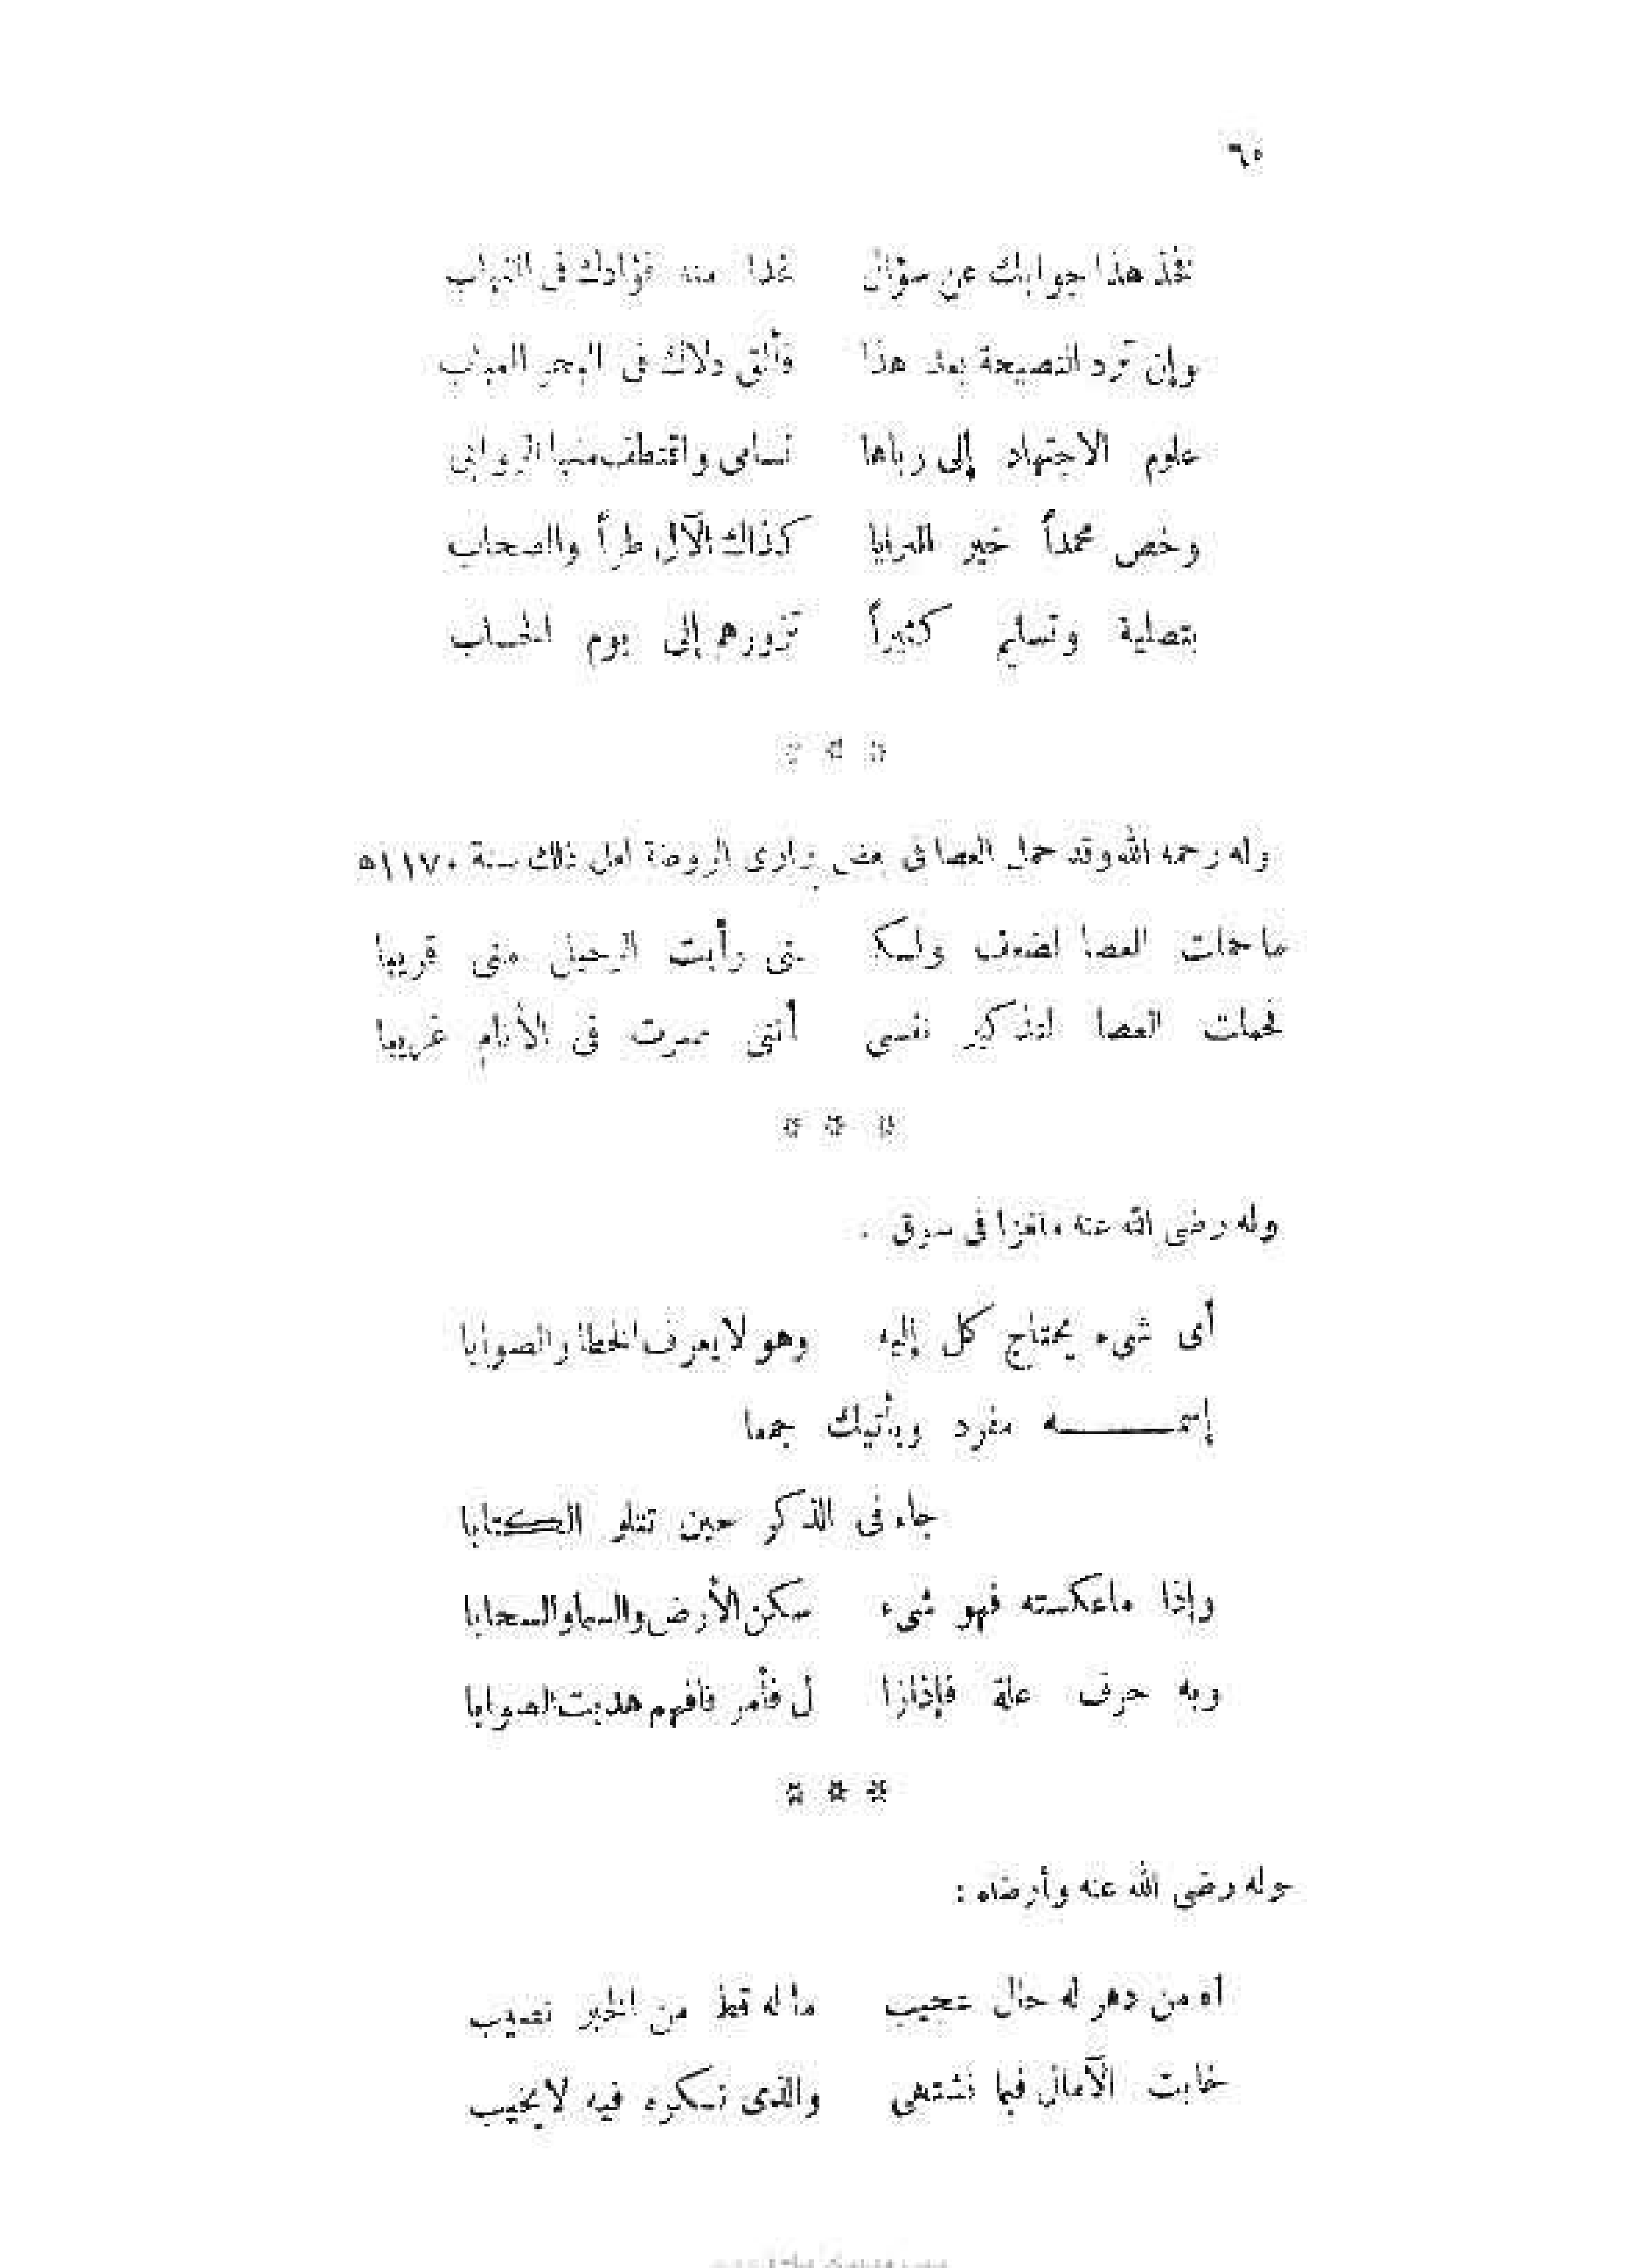 ٦٥
فخذ هذا جوابك عن سؤال غدا منه فؤادك فى التهاب
وإن ترد النصيحة بعد هذا فألق دلاك فى البحر العباب
علوم الاجتهاد إلى رباها تسامى واقتطف منها الروابى
وخص محمداً خير البرايا كذاك الآل طراً والصحاب
بتصلية وتسليم كثيراً تزورهم إلى يوم الحساب
* * *
وله رحمه الله وقد حمل العصا فى بعض برارى الروضة لعل ذلك سنة ١١٧٠ه
ما حملت العصا لضعف ولكـ ـنى رأيت الرحيل منى قريبا
فحملت العصا لتذكير نفسى أننى صرت فى الأنام غريبا
* * *
وله رضى الله عنه ملغزا فى سوق .
أى شىء يحتاج كل إليه وهو لا يعرف الخطا والصوابا
إسمـــه مفرد ويأتيك جمعا
جاء فى الذكر حين تتلو الكتابا
وإذا ما عكسته فهو شىء سكن الأرض والسما والسحابا
وبه حرف علة فإذا زا ل فأمر فافهم هديت الصوابا
* * *
وله رضى الله عنه وأرضاه :
آه من دهر له حال عجيب ما له قط من الخير نصيب
خابت الآمال فيما نشتهى والذى نكره فيه لا يخيب